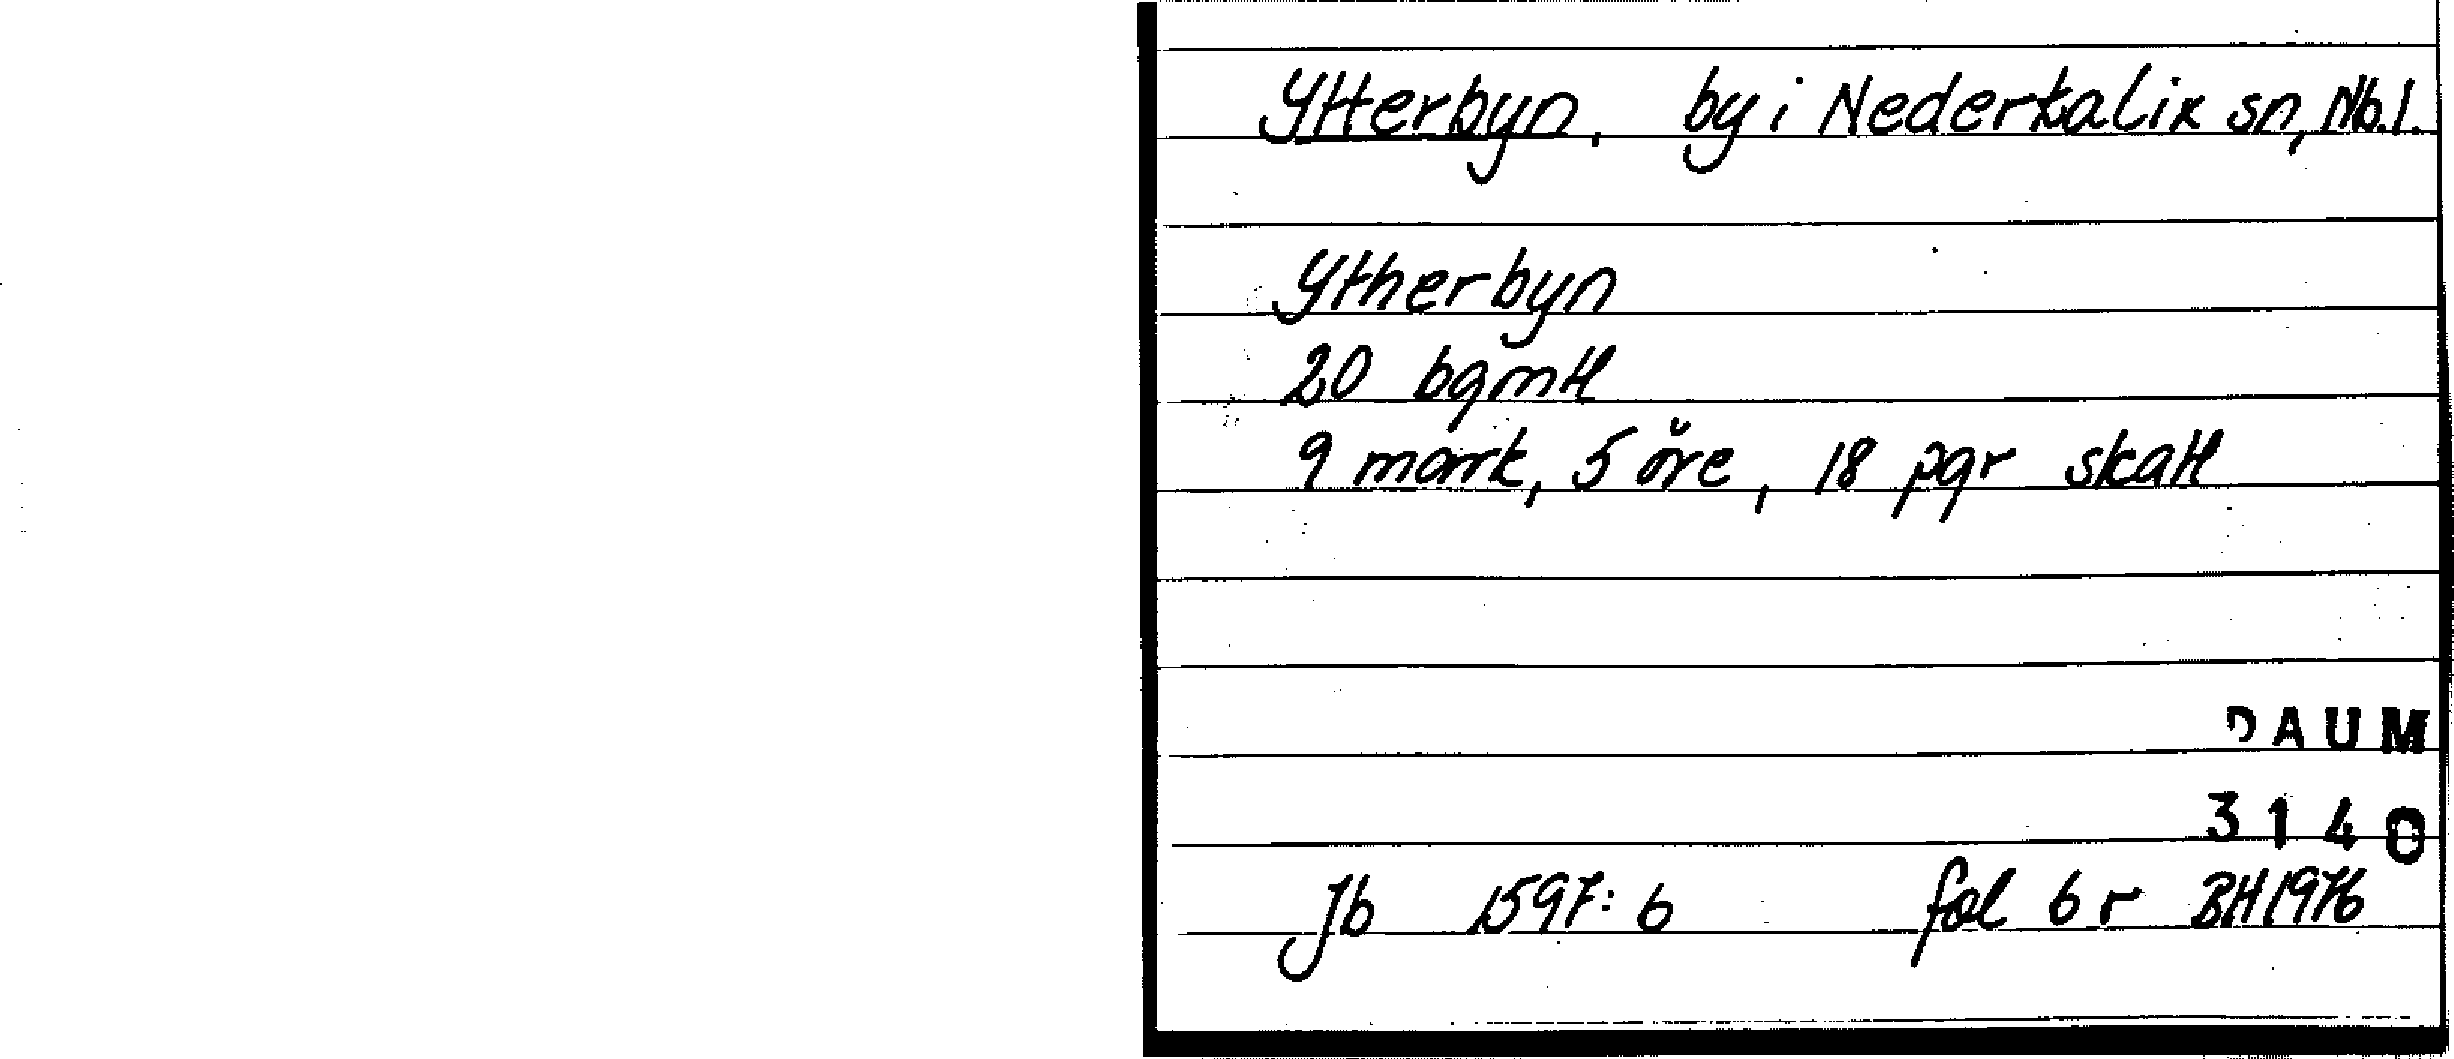 Ytterbyn, by i Nederkalix sn, Nb.l.
Ytherbyn
20 bgmtl
9 mark, 5 öre, 18 pgr skatt
DAUM
3140
Jb 1597:6 fol 6 r BH 1976